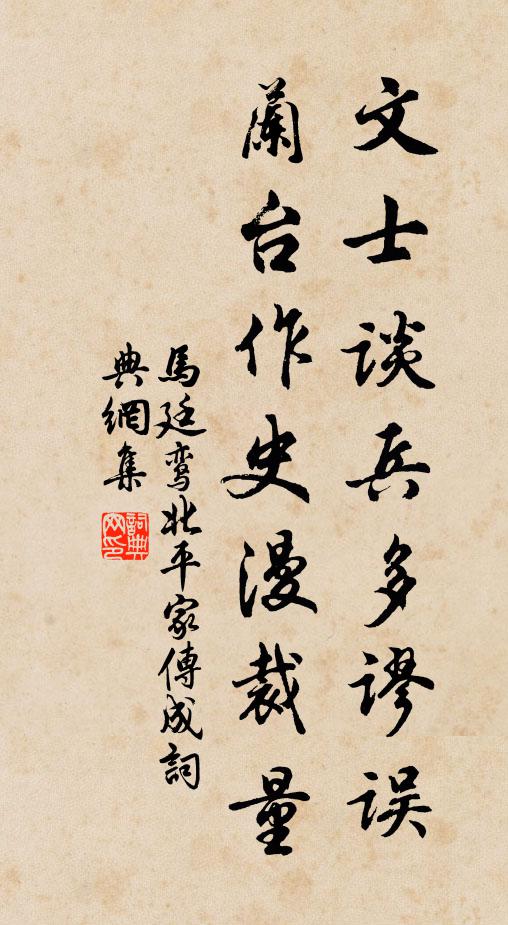 文士谈兵多谬误
蘭台作史漫裁量
馬廷鸾北平家傳成詞
典網集
詞典网印